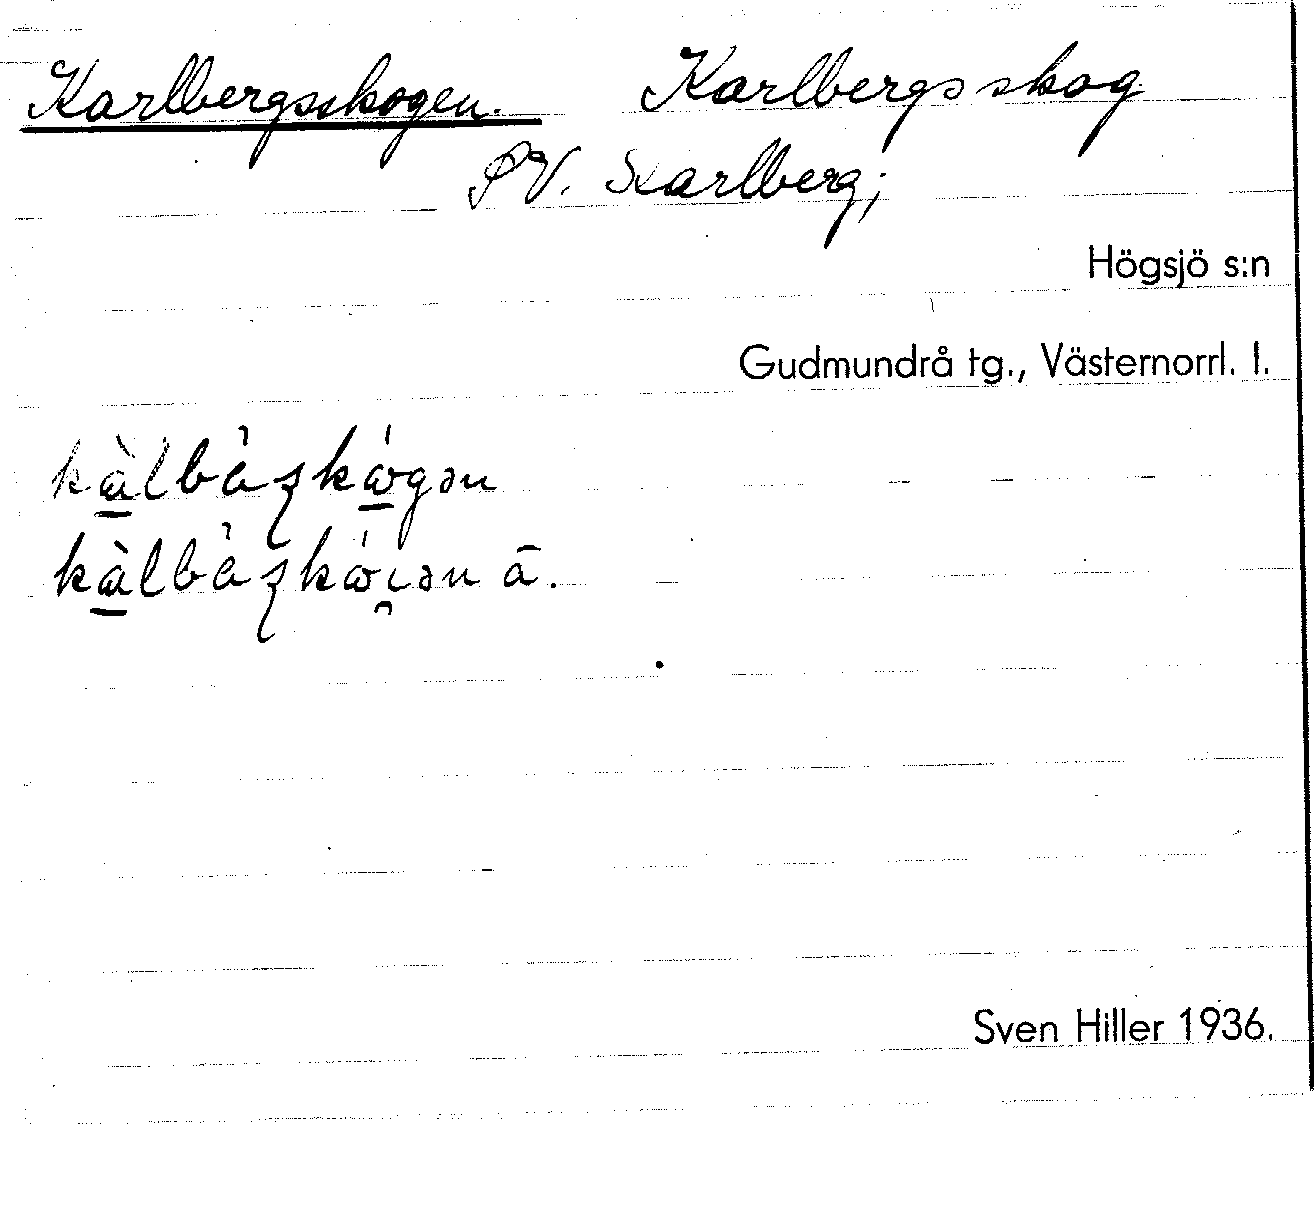 Karlbergsskogen. Karlbergsskog
SV. Karlberg;
Högsjö s:n
Gudmundrå tg., Västernorrl. l.
kàlbàʂkǻgən
kàlbàʂkǻɩ̯ən ā.
Sven Hiller 1936.